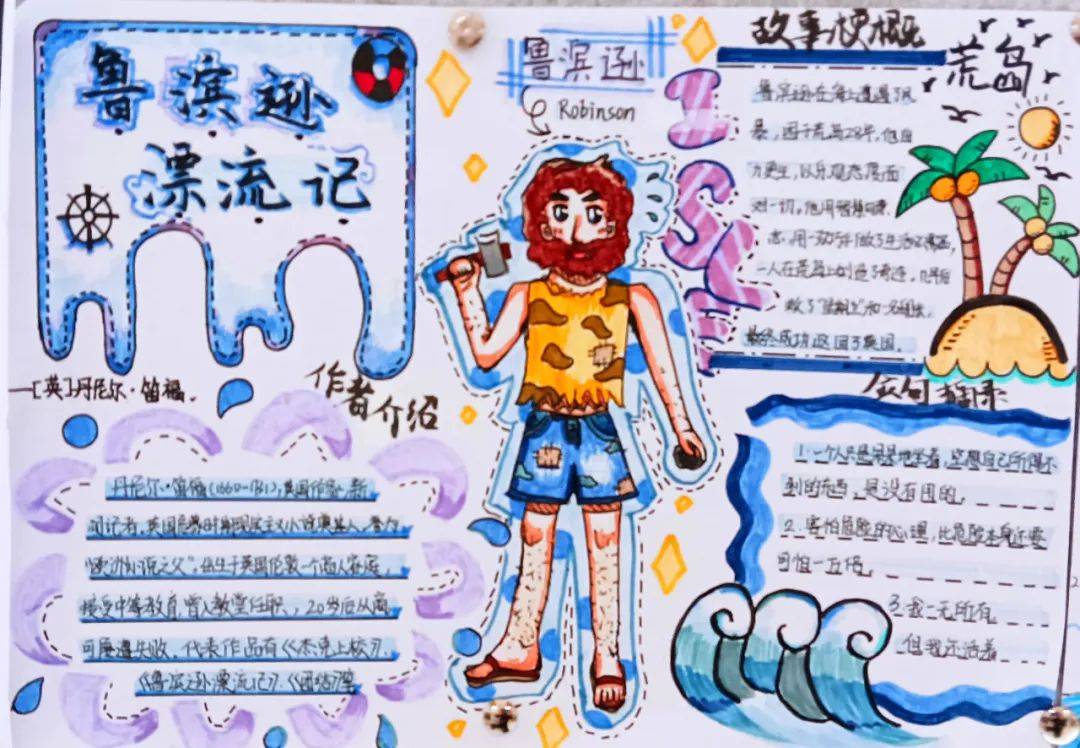 鲁滨逊
漂流记
—[英]丹尼尔·笛福.
作者介绍
丹尼尔·笛福(1660-1731),英国作家,新
闻记者,英国启蒙时期现实主义小说奠基人,誉为
"欧洲小说之父",出生于英国伦敦一个商人家庭,
接受中等教育,曾入教堂任职,20岁后从商
可屡遭失败,代表作品有《杰克上校》.
《鲁滨逊漂流记》.《团结》等
鲁滨逊
Robinson
故事梗概
鲁滨逊在海上遭遇了风
暴,困于荒岛28年,他自
力更生,以乐观态度面
对一切,他用智慧与
志,用一双巧手做了生活必需品,
一人在荒岛上创造了奇迹,几年后
救了"星期五"和一名船长,
最终成功返回了英国.
荒岛
ISLE
金句摘录
1.一个人只是呆呆地坐着,空想自己所得不
到的东西,是没有用的.
2.害怕危险的心理,比危险本身还要
可怕一万倍.
3.我一无所有
但我还活着